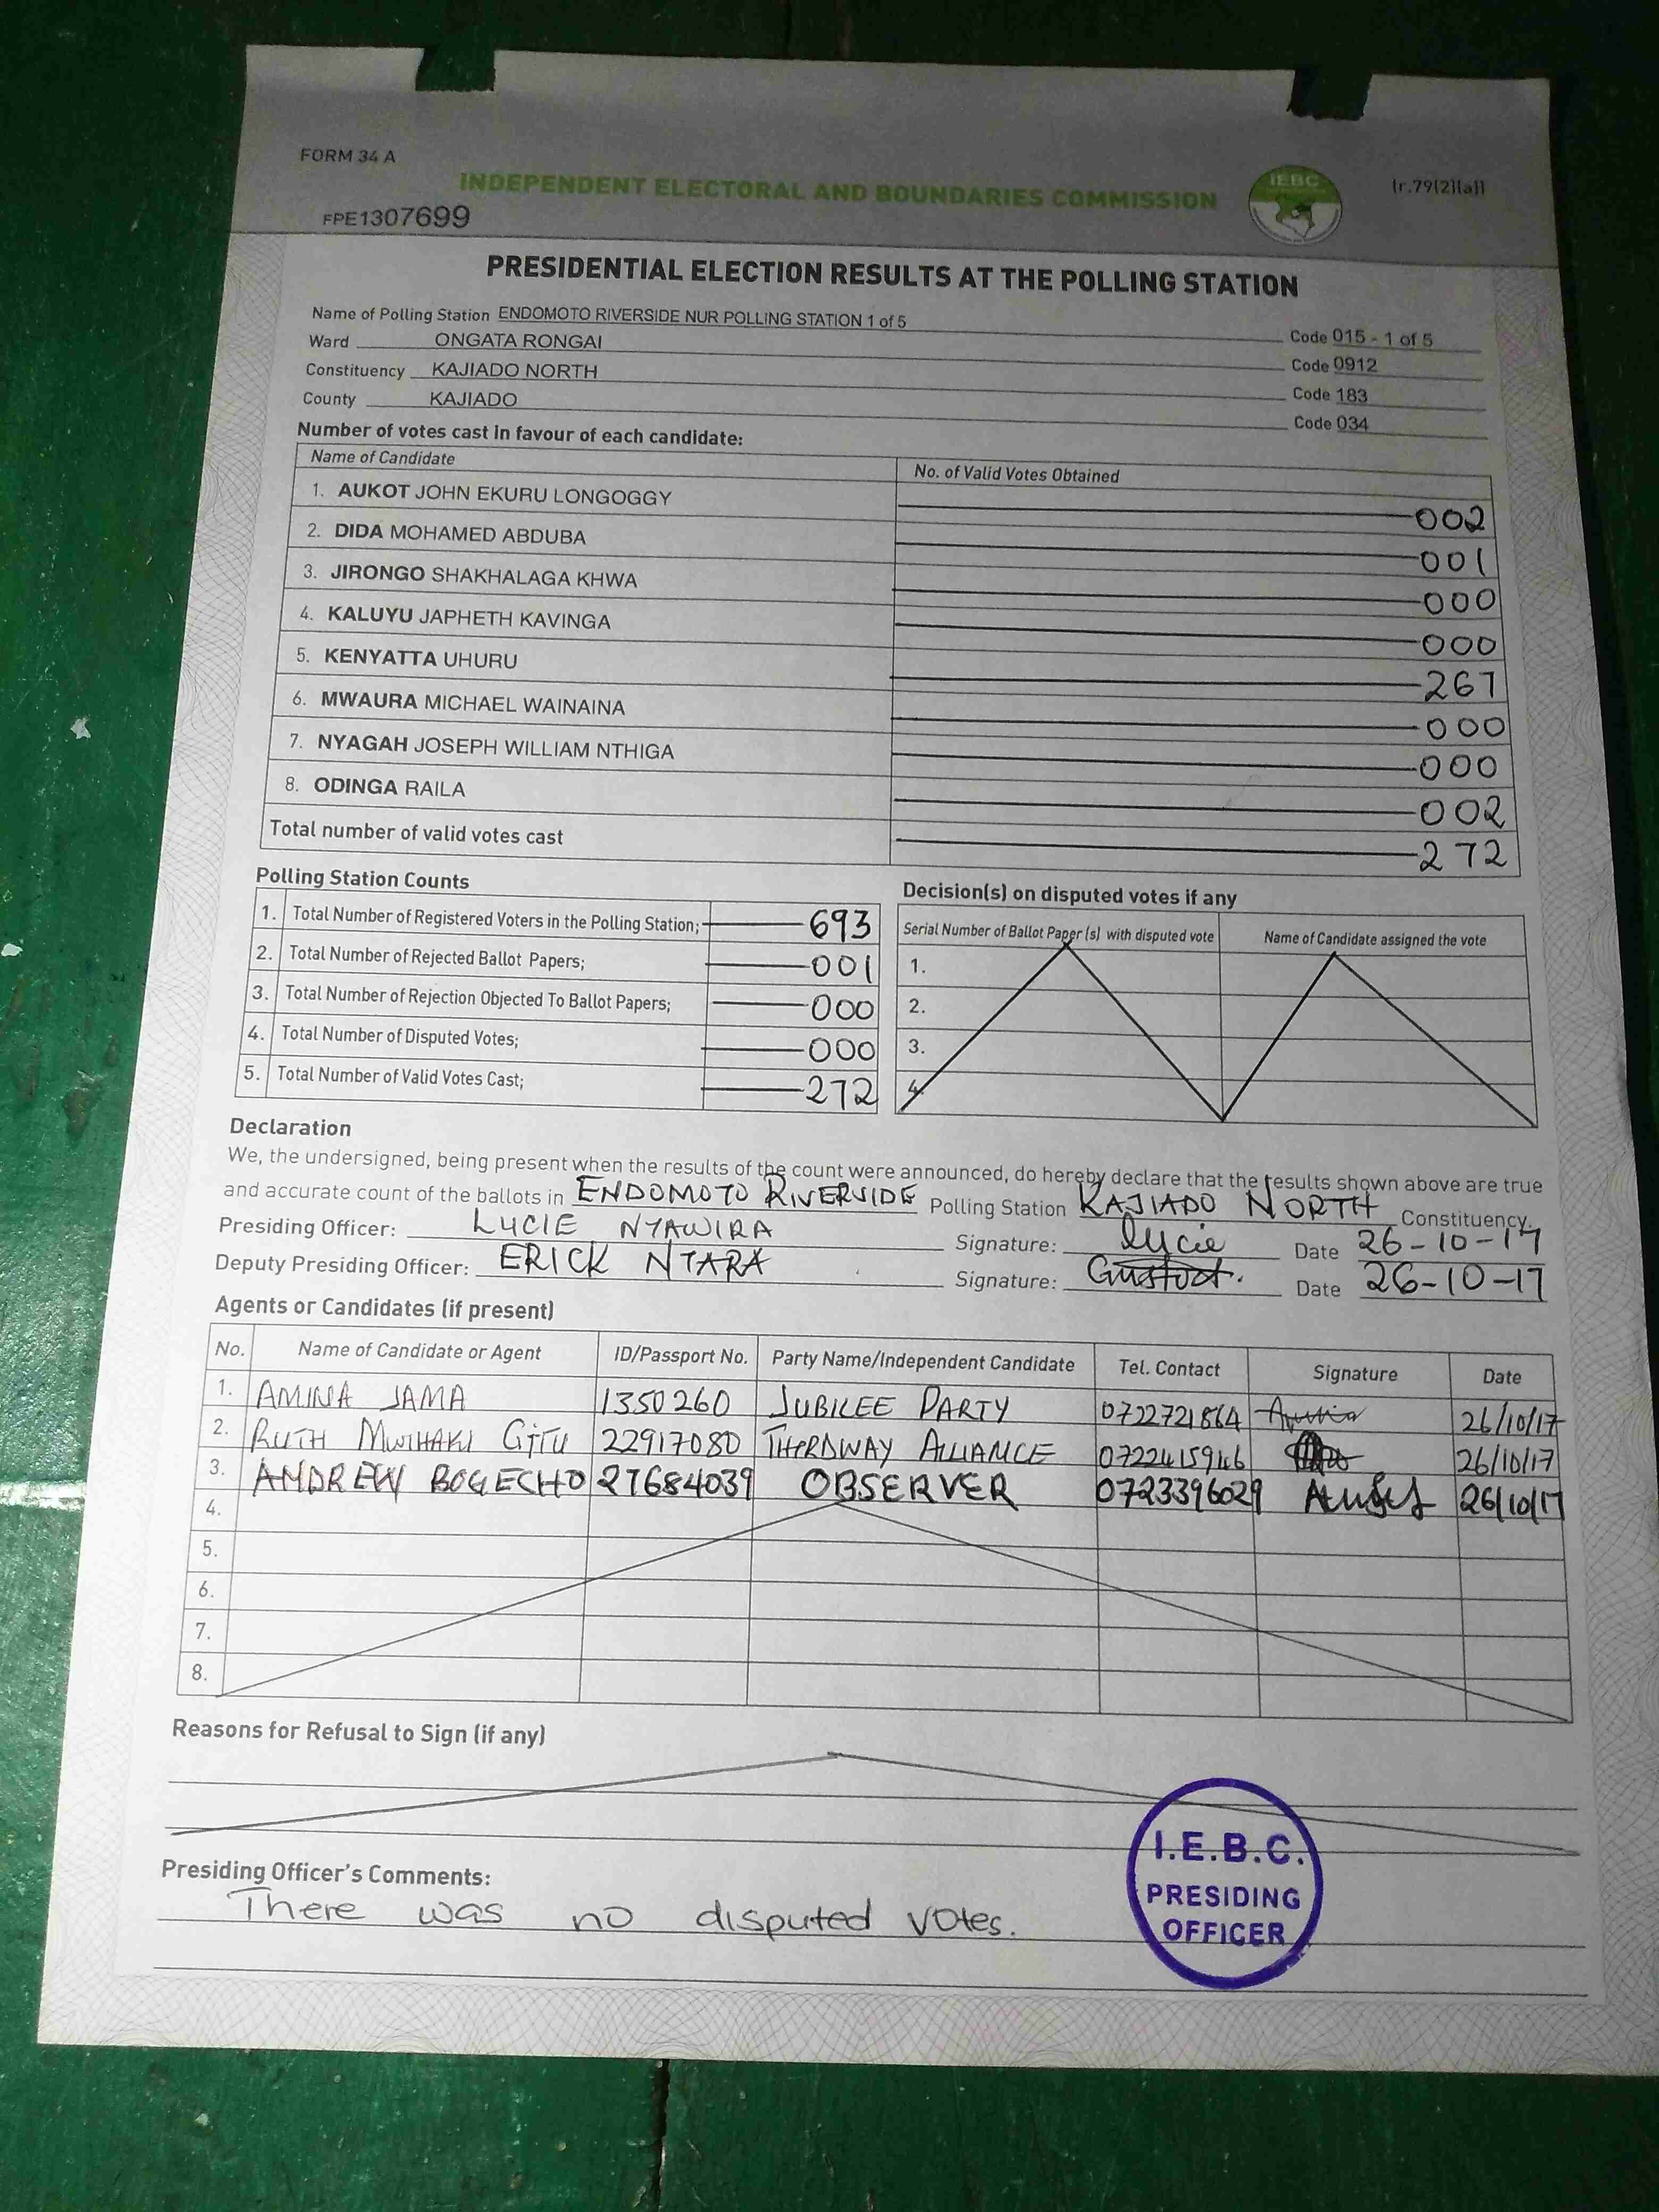 FORM 34 A
INDEPENDENT ELECTORAL AND BOUNDARIES COMMISSION
IEBC
(r.79(2)(a))
FPE1307699
PRESIDENTIAL ELECTION RESULTS AT THE POLLING STATION
Name of Polling Station ENDOMOTO RIVERSIDE NUR POLLING STATION 1 of 5 Code 015 - 1 of 5
Ward ONGATA RONGAI Code 0912
Constituency KAJIADO NORTH Code 183
County KAJIADO Code 034
Number of votes cast in favour of each candidate:
Name of Candidate No. of Valid Votes Obtained
1. AUKOT JOHN EKURU LONGOGGY 002
2. DIDA MOHAMED ABDUBA 001
3. JIRONGO SHAKHALAGA KHWA 000
4. KALUYU JAPHETH KAVINGA 000
5. KENYATTA UHURU 267
6. MWAURA MICHAEL WAINAINA 000
7. NYAGAH JOSEPH WILLIAM NTHIGA 000
8. ODINGA RAILA 002
Total number of valid votes cast 272
Polling Station Counts
1. Total Number of Registered Voters in the Polling Station; 693
2. Total Number of Rejected Ballot Papers; 001
3. Total Number of Rejection Objected To Ballot Papers; 000
4. Total Number of Disputed Votes; 000
5. Total Number of Valid Votes Cast; 272
Decision(s) on disputed votes if any
Serial Number of Ballot Paper (s) with disputed vote Name of Candidate assigned the vote
1.
2.
3.
4.
Declaration
We, the undersigned, being present when the results of the count were announced, do hereby declare that the results shown above are true
and accurate count of the ballots in ENDOMOTO RIVERSIDE Polling Station KAJIADO NORTH Constituency.
Presiding Officer: LUCIE NYAWIRA Signature: Lucie Date 26-10-17
Deputy Presiding Officer: ERICK NTARA Signature: Date 26-10-17
Agents or Candidates (if present)
No. Name of Candidate or Agent ID/Passport No. Party Name/Independent Candidate Tel. Contact Signature Date
1. AMINA JAMA 1350260 JUBILEE PARTY 0722721864 26/10/17
2. RUTH MWIHAKI GITU 22917080 THERDWAY ALLIANCE 0722415946 26/10/17
3. ANDREW BOGECHO 27684039 OBSERVER 0723396029 26/10/17
4.
5.
6.
7.
8.
Reasons for Refusal to Sign (if any)
Presiding Officer's Comments:
There was no disputed votes.
I.E.B.C.
PRESIDING
OFFICER